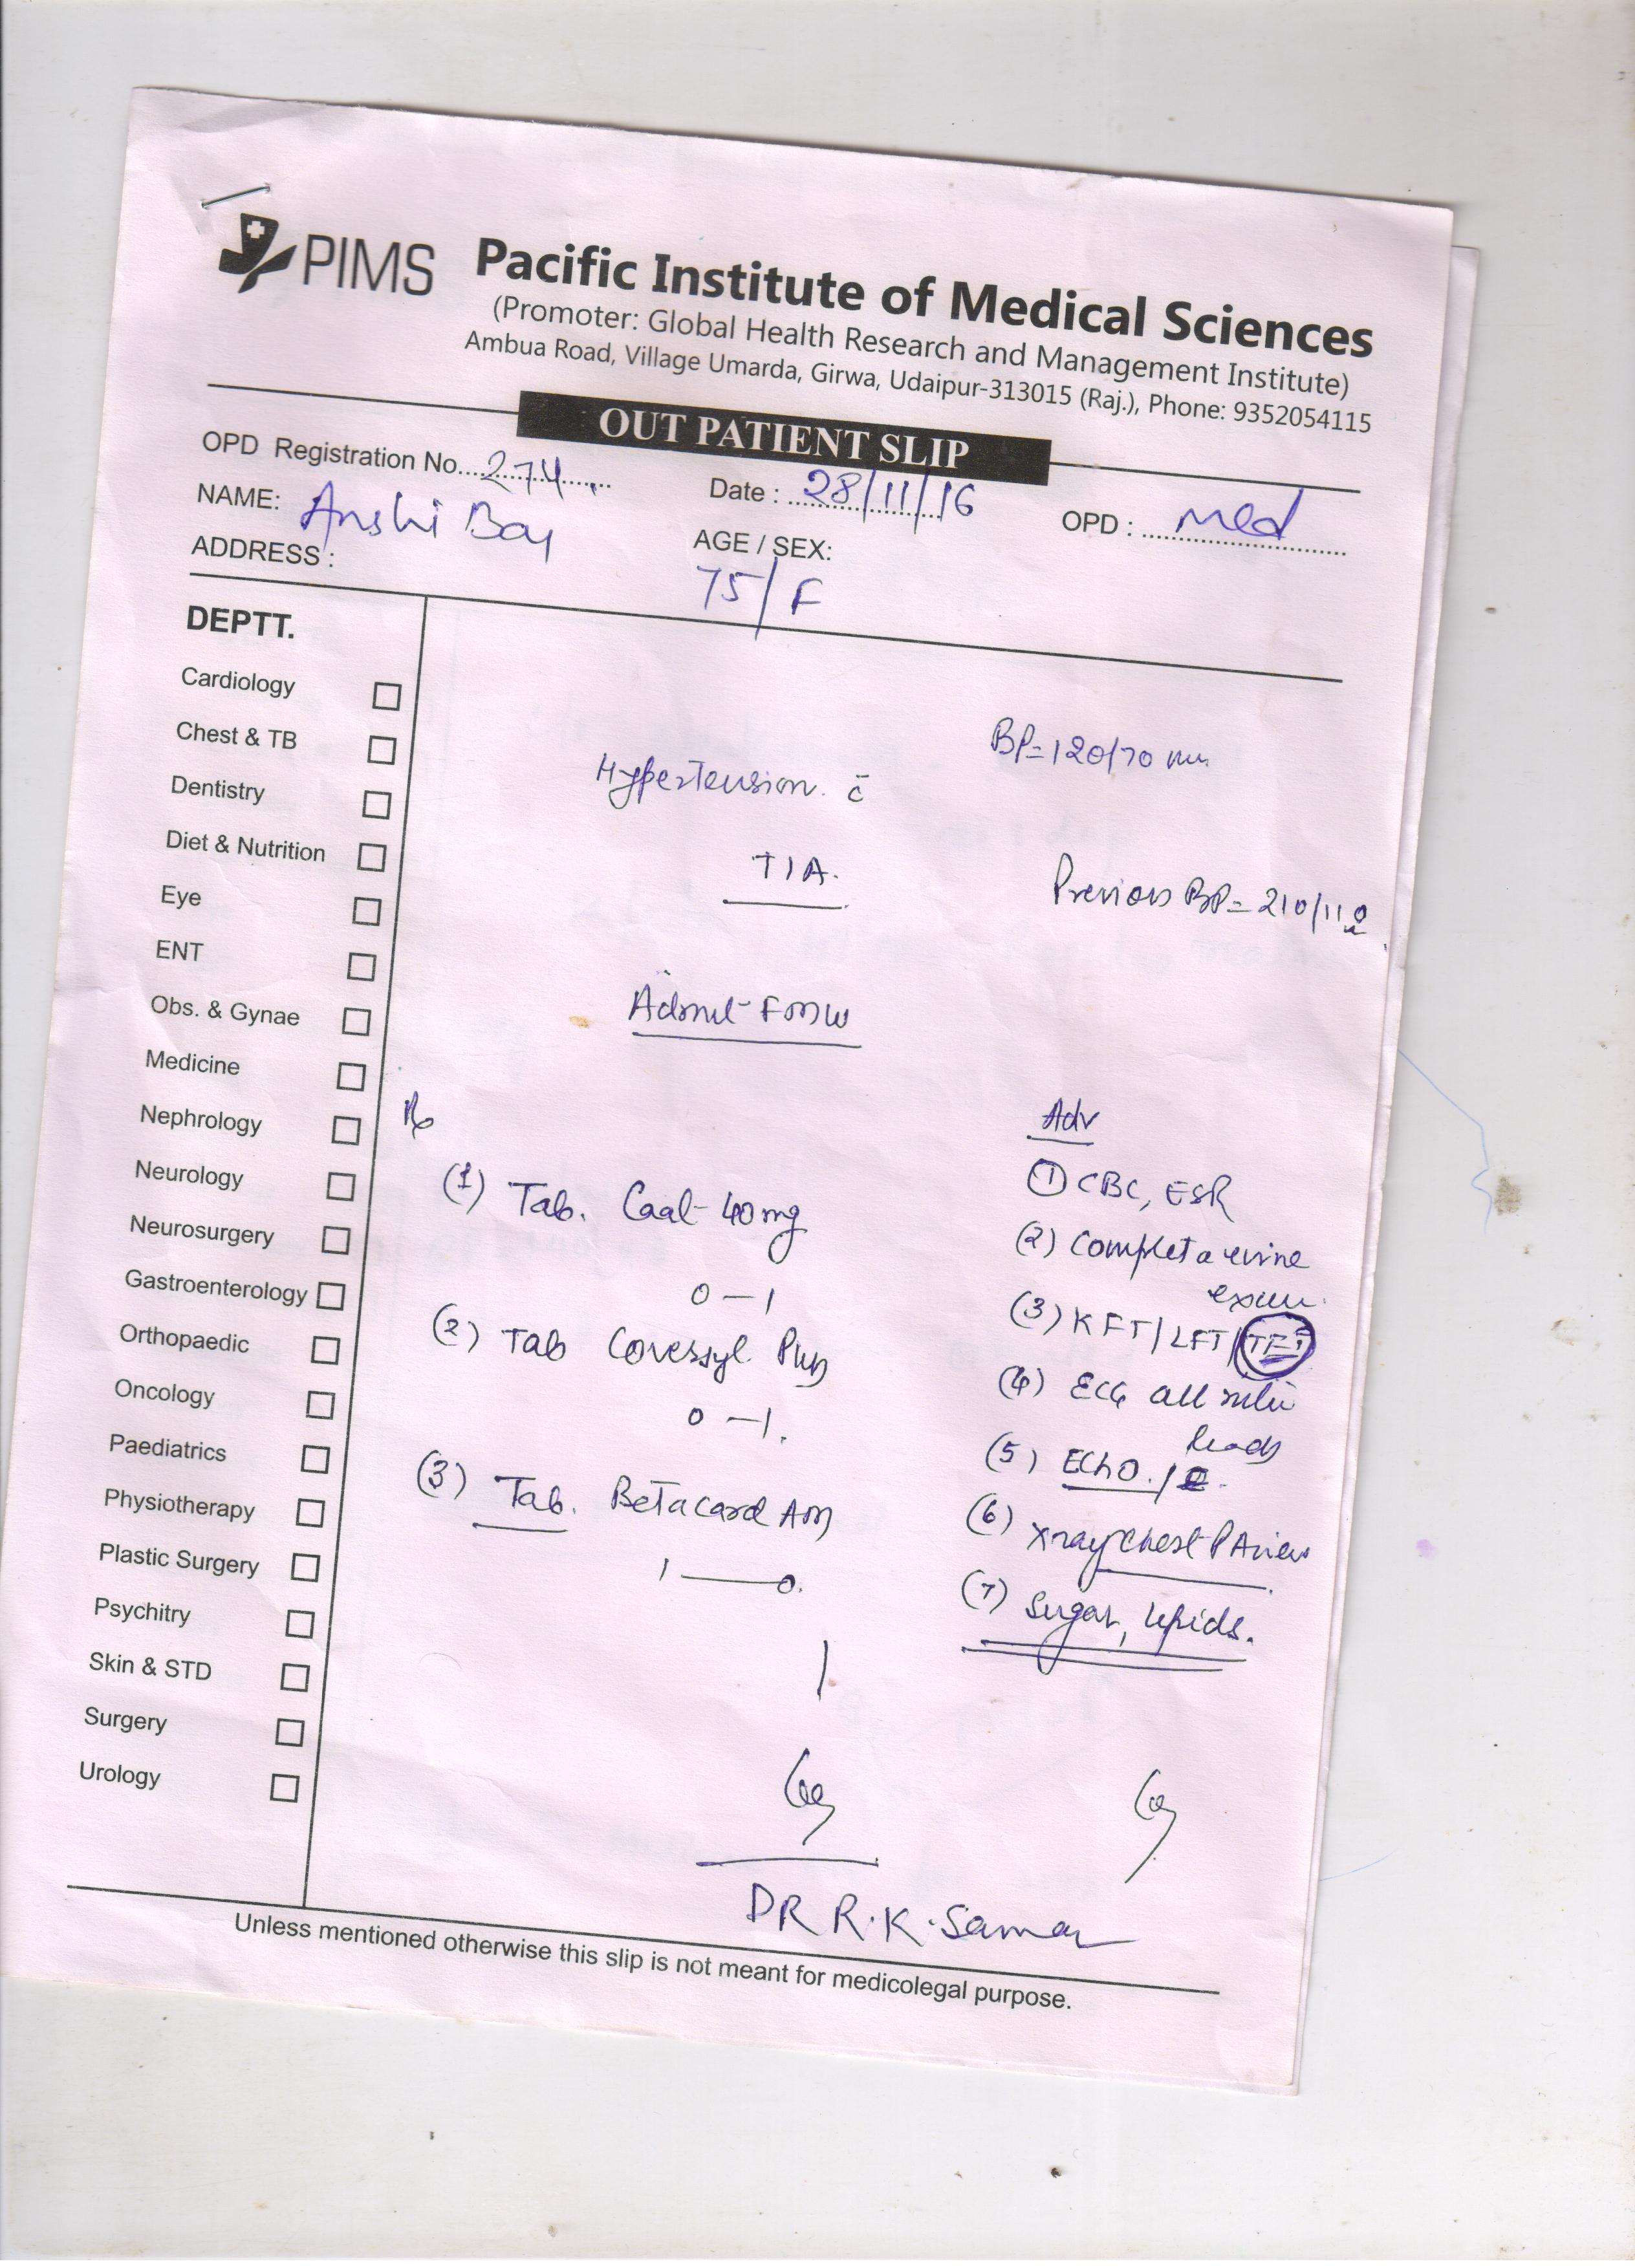 PIMS
Pacific Institute of Medical Sciences
(Promoter: Global Health Research and Management Institute)
Ambua Road, Village Umarda, Girwa, Udaipur-313015 (Raj.), Phone: 9352054115
OUT PATIENT SLIP
OPD Registration No. 274
Date : 28/11/16
OPD : Med
NAME: Anshi Bai
AGE / SEX:
75/F
ADDRESS :
DEPTT.
Cardiology
Chest & TB
Dentistry
Diet & Nutrition
Eye
ENT
Obs. & Gynae
Medicine
Nephrology
Neurology
Neurosurgery
Gastroenterology
Orthopaedic
Oncology
Paediatrics
Physiotherapy
Plastic Surgery
Psychitry
Skin & STD
Surgery
Urology
BP=120/70
Hypertension. c̄
TIA.
Previous BP=210/110
Admit FMW
Rx
(1) Tab. 40mg
0 – 1
(2) Tab Coversyl Plus
0 – 1.
(3) Tab. Betacard AM
1 — 0.
Adv
(1) CBC, ESR
(2) Complete urine
exam.
(3) KFT/LFT/TFT
(4) ECG all
leads
(5) Echo.
(6) Xray Chest PA view
(7) Sugar, lipids.
DR R.K. Samar
Unless mentioned otherwise this slip is not meant for medicolegal purpose.